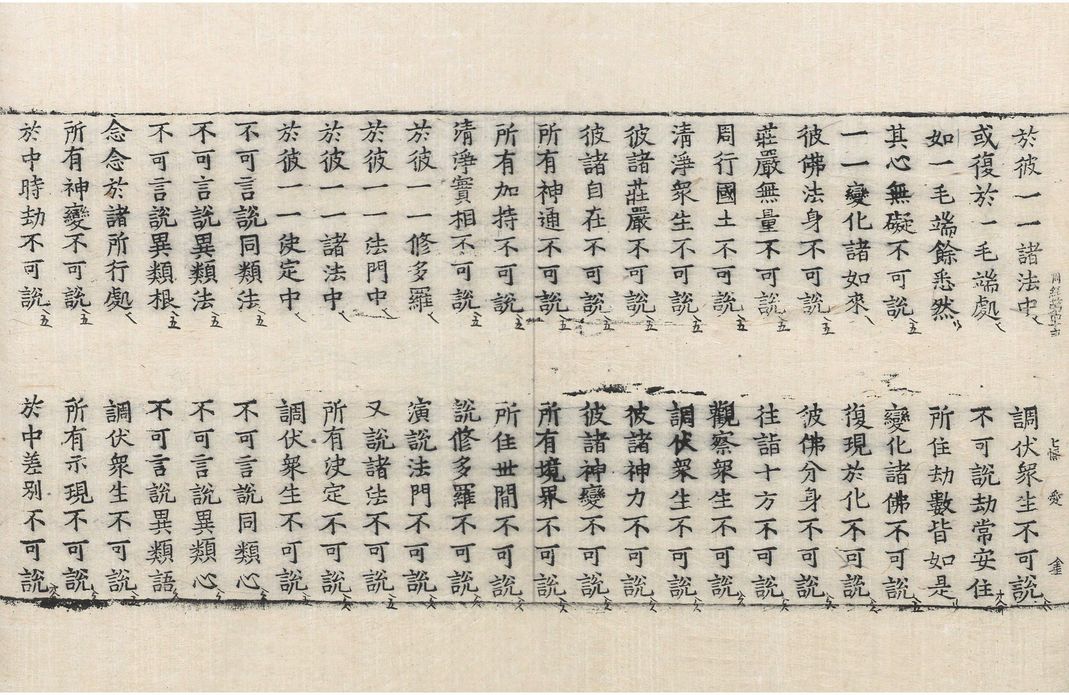 於彼一一諸法中　調伏衆生不可說
或復於一毛端處　不可說劫常安住
如一毛端餘悉然　所住劫數皆如是
其心無礙不可說　變化諸佛不可說
一一變化諸如來　復現於化不可說
彼佛法身不可說　彼佛分身不可說
莊嚴無量不可說　往詣十方不可說
周行國土不可說　觀察衆生不可說
清淨衆生不可說　調伏衆生不可說
彼諸莊嚴不可說　彼諸神力不可說
彼諸自在不可說　彼諸神變不可說
所有神通不可說　所有境界不可說
所有加持不可說　所住世間不可說
清淨實相不可說　說修多羅不可說
於彼一一修多羅　演說法門不可說
於彼一一法門中　又說諸法不可說
於彼一一諸法中　所有決定不可說
於彼一一決定中　調伏衆生不可說
不可言說同類法　不可言說同類心
不可言說異類法　不可言說異類心
不可言說異類根　不可言說異類語
念念於諸所行處　調伏衆生不可說
所有神變不可說　所有示現不可說
於中時劫不可說　於中差別不可說